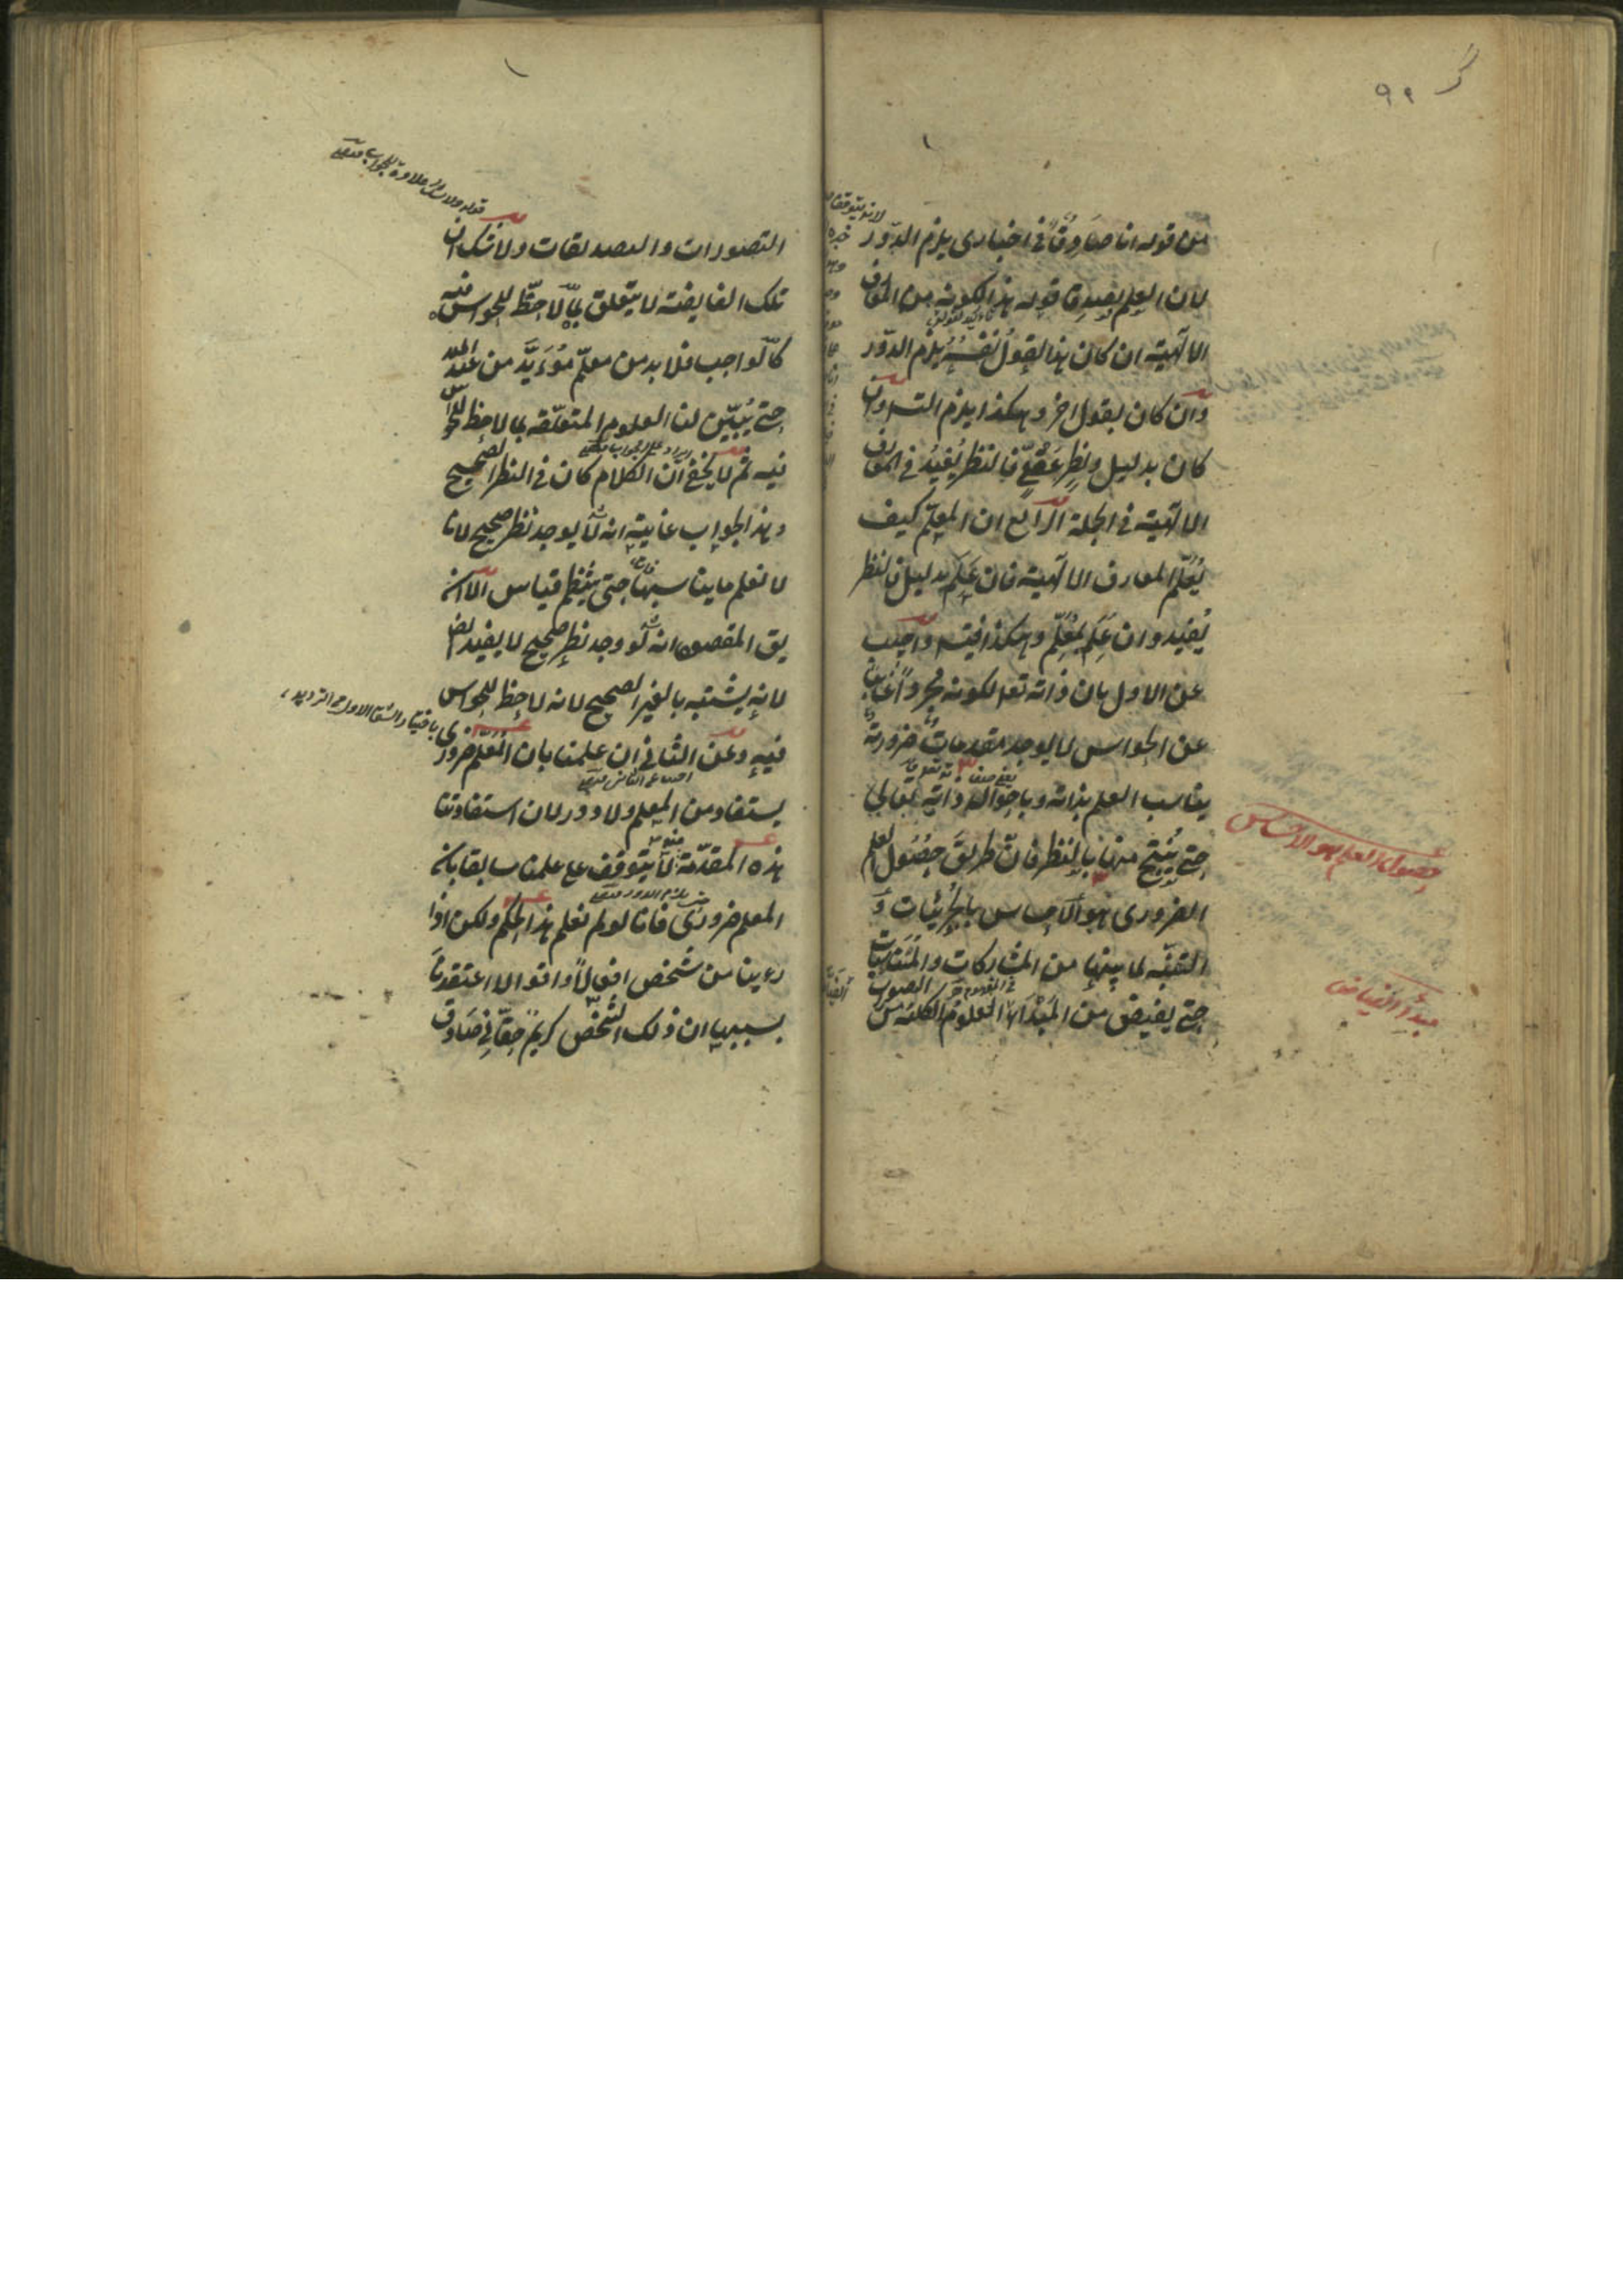 ٩٩
من قوله انا صادق في اخباري يلزم الدور
لان العلم بصدق قوله هذا لكونه من المعارف
الالهية ان كان بهذا القول نفسه يلزم الدور
وان كان بقول اخر وهكذا يلزم التسلسل وان
كان بدليل ونظر عقلي فالنظر يفيد في المعارف
الالهية في الجملة الرابع ان المعلم كيف
يعلم المعارف الالهية فان علم بدليل فالنظر
يفيد وان علم بمعلم وهكذا فيتسلسل واجيب
عن الاول بان ذاته تعا لكونه مجردا غائبا
عن الحواس لا يوجد مقدمات ضرورية
يناسب العلم بذاته وباحوال ذاته تعالى
حتى ينتج منها بالنظر فان طريق حصول العلم
الضروري هو الاحساس بالجزئيات و
التنبه لما بينها من المشاركات والمتباينات
حتى يفيض من المبدأ العلوم الكلية من
حصول العلم هو الاحساس
مبدأ الفياض
التصورات والتصديقات ولا شك ان
تلك الفايضة لا يتعلق بما لا حظ للحواس فيه
كالواجب فلا بد من معلم مؤيد من عند الله
حتى يبين لنا العلوم المتعلقة بما لا حظ للحواس
فيه ثم لا يخفى ان الكلام كان في النظر الصحيح
وهذا الجواب غايته انه لا يوجد نظر صحيح لانا
لا نعلم ما يناسبها حتى ينظم قياس الا انه
يق المقصود انه لو وجد نظر صحيح لا يفيد ايضا
لانه يشتبه بالغير الصحيح لانه لا حظ للحواس
فيه وعن الثاني ان علمنا بان المعلم ضروري
يستفاد من المعلم ولا دور لان استفادتنا
هذه المقدمة لا يتوقف على علمنا سابقا بانه
المعلم ضروري فانا لو لم نعلم هذا الحكم ولكن اذا
رءينا من شخص افعالا واقوالا اعتقدنا
بسببها ان ذلك الشخص كريم حقاني صادق